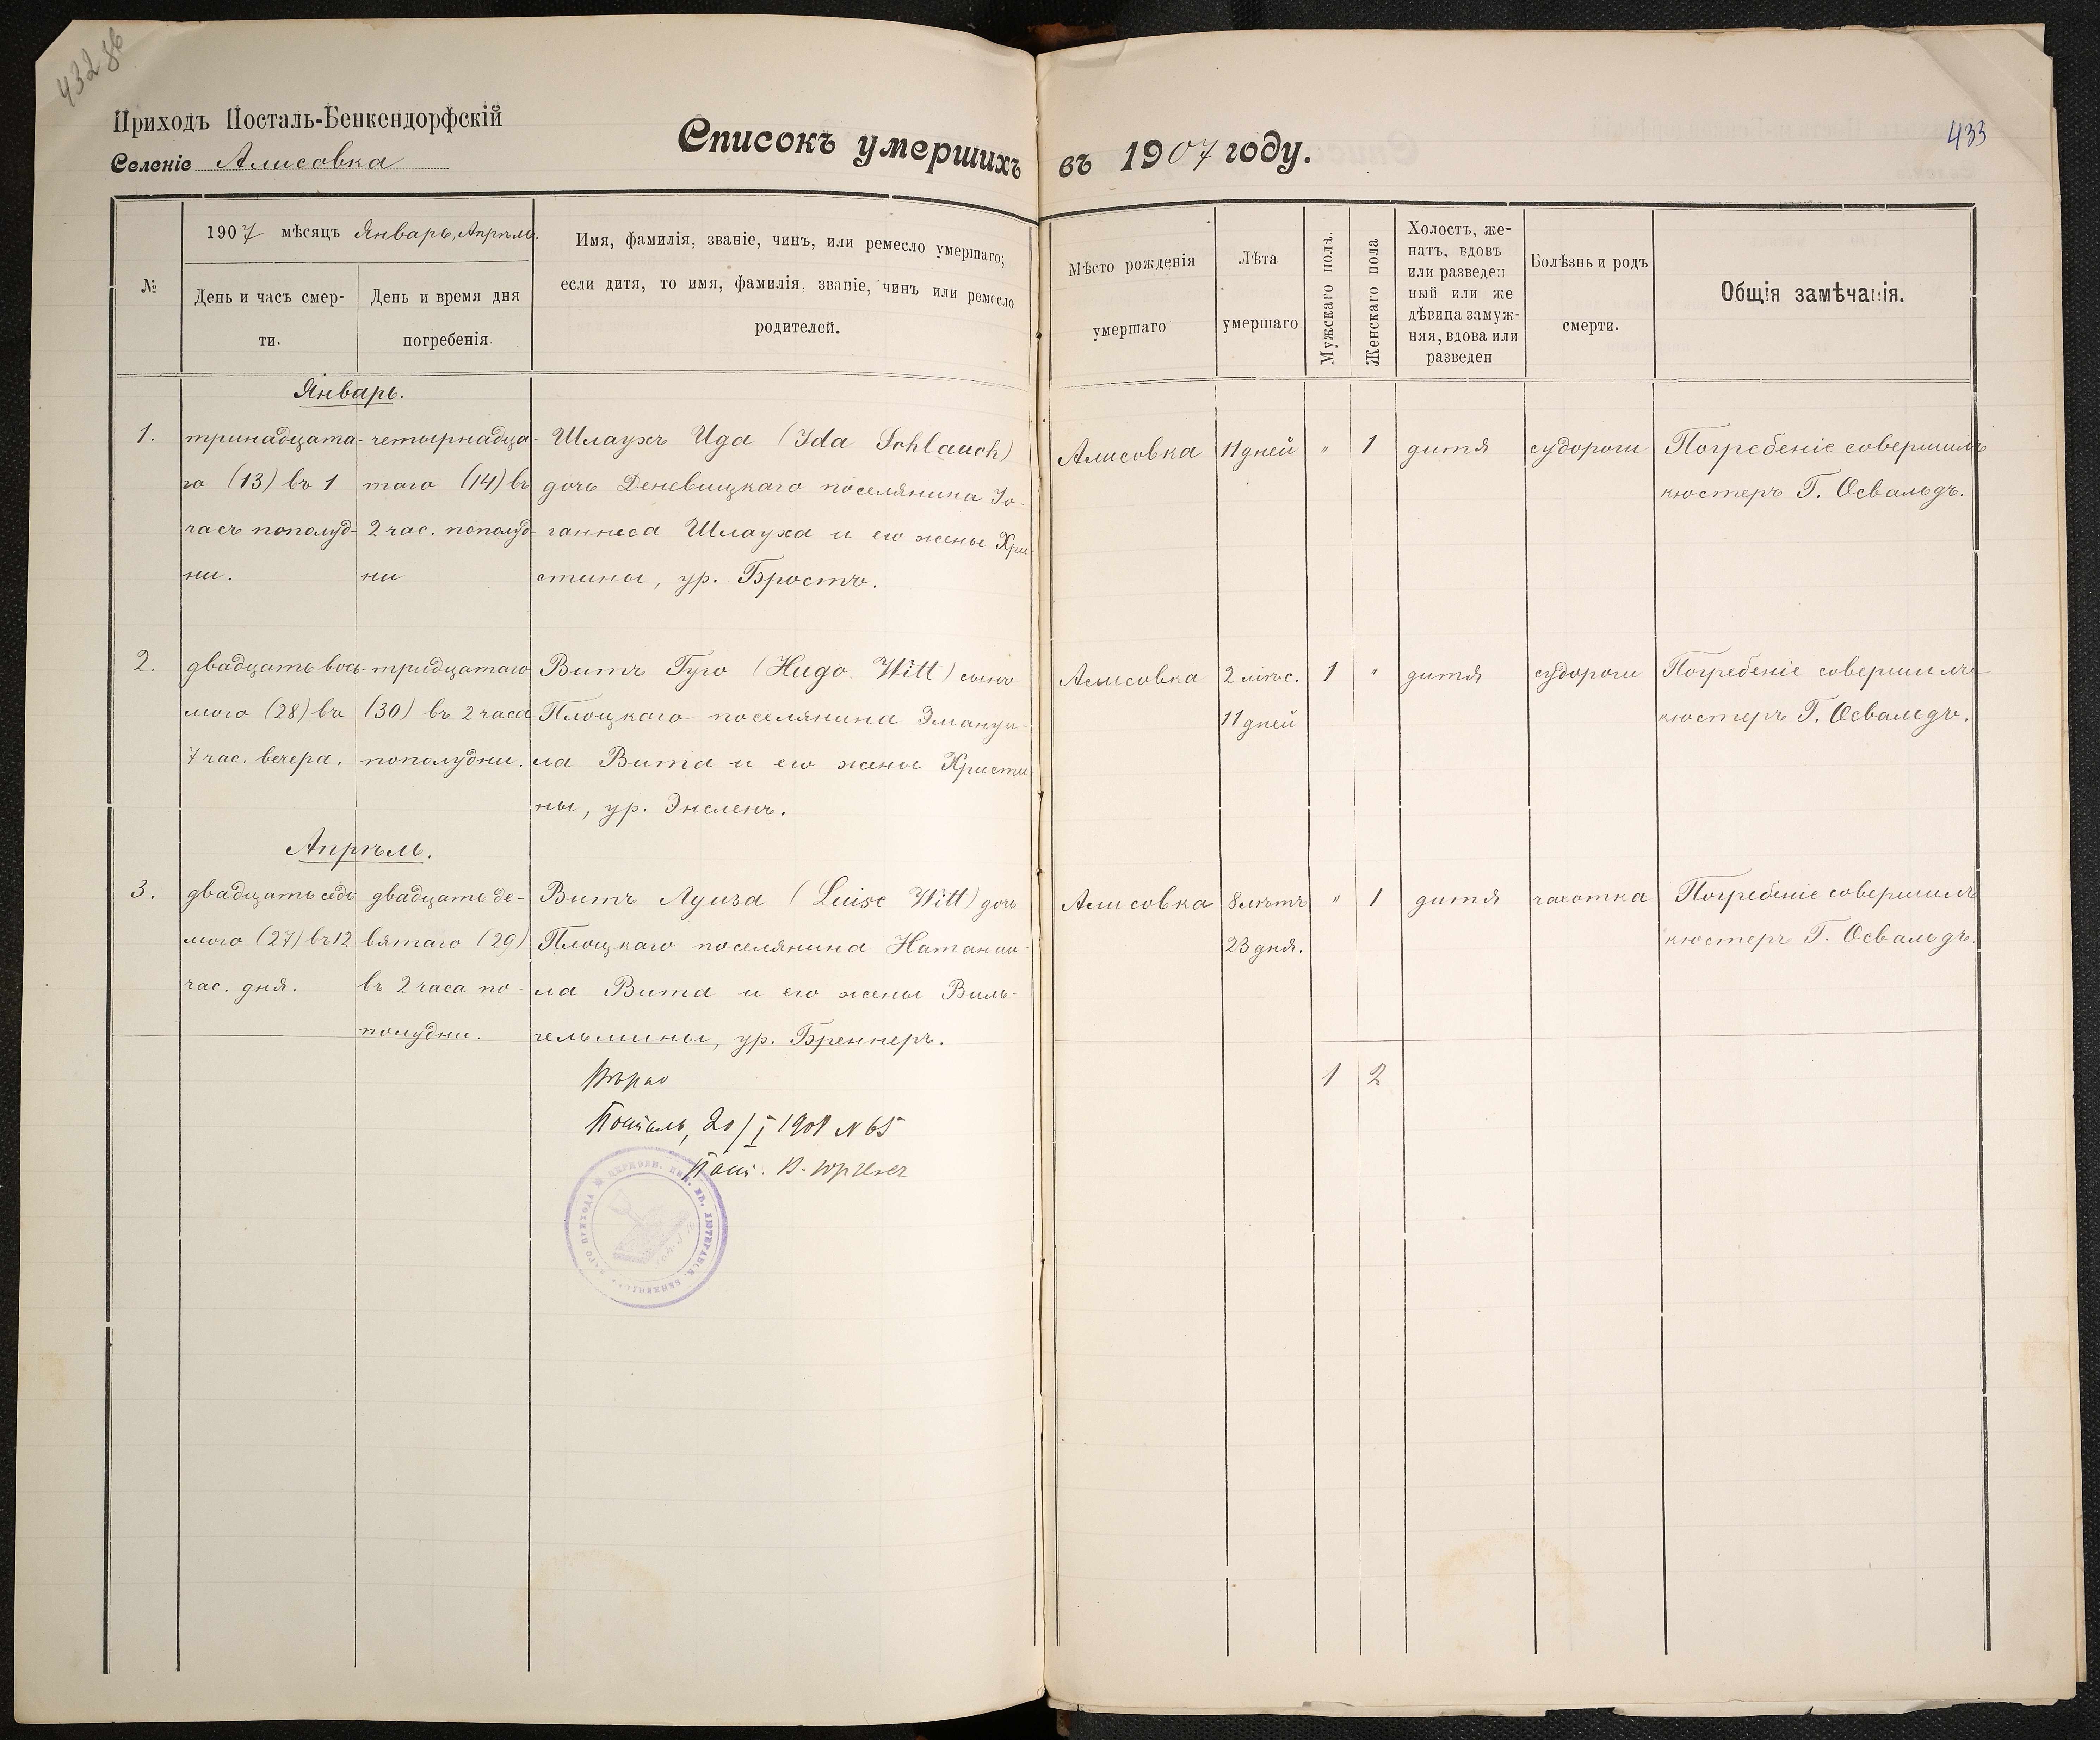 432 об
433
Приходъ Посталь-Бенкендорфскій
Селеніе Алисовка
Списокъ умершихъ въ 1907 году.
№
1907 мѣсяцъ Январь, Апрѣль.
День и часъ смер-
ти.
День и время дня
погребенія.
Имя, фамилія, званіе, чинъ, или ремесло умершаго;
если дитя, то имя, фамилія, званіе, чинъ или ремесло
родителей.
Мѣсто рожденія
умершаго
Лѣта
умершаго
Мужскаго пола.
Женскаго пола
Холостъ, же-
натъ, вдовъ
или разведен
ный или же
дѣвица замуж-
няя, вдова или
разведен
Болѣзнь и родъ
смерти.
Общія замѣчанія.
Январь.
1.
тринадцата-
го (13) въ 1
часъ пополуд-
ни.
четырнадца-
таго (14) въ
2 час. пополуд-
ни
Шлаухъ Ида (Ida Schlauch)
дочь Деневицкаго поселянина Іо-
ганнеса Шлауха и его жены Хри-
стины, ур. Бростъ.
Алисовка
11 дней
"
1
дитя
судороги
Погребеніе совершилъ
кюстеръ Г. Освальдъ.
2.
двадцать вось-
мого (28) въ
7 час. вечера.
тридцатаго
(30) въ 2 часа
пополудни.
Витъ Гуго (Hugo Witt) сынъ
Плоцкаго поселянина Эмануи-
ла Вита и его жены Христи-
ны, ур. Энсленъ.
Алисовка
2 мѣс.
11 дней
1
"
дитя
судороги
Погребеніе совершилъ
кюстеръ Г. Освальдъ.
Апрѣль.
3.
двадцать седь
мого (27) въ 12
час. дня.
двадцать де-
вятаго (29)
въ 2 часа по-
полудни.
Витъ Луиза (Luise Witt) дочь
Плоцкаго поселянина Натанаи-
ла Вита и его жены Виль-
гельмины, ур. Бреннеръ.
Алисовка
8 лѣтъ
23 дня.
"
1
дитя
чахотка
Погребеніе совершилъ
кюстеръ Г. Освальдъ.
1
2
Вѣрно
Посталь, 20/I 1908 N 65
Паст.